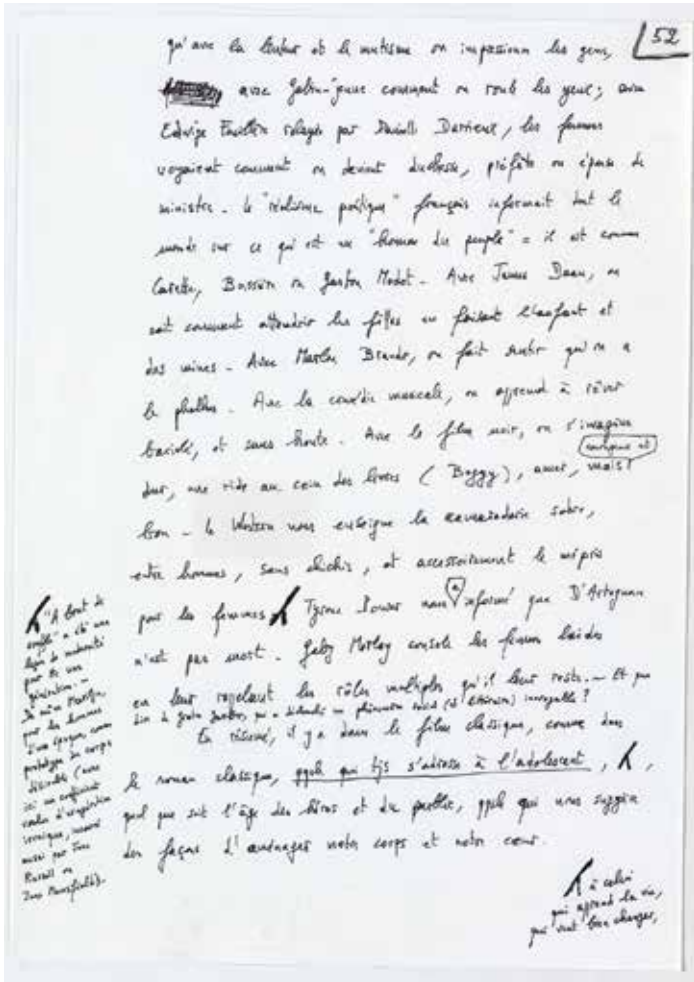 52
qu'avec la lenteur et le mutisme on impressionne les gens,
avec Gabin-jeune comment on roule les yeux ; avec
Edwige Feuillère relayée par Danielle Darrieux, les femmes
voyaient comment on devient duchesse, préfète ou épouse de
ministre - le "réalisme poétique" français informait tout le
monde sur ce qui est un "homme du peuple" = il est comme
Carette, Bussière ou Gaston Modot - Avec James Dean, on
sait comment attendrir les filles en faisant l'enfant et
des mines - Avec Marlon Brando, on fait sentir qu'on a
le phallus - Avec la comédie musicale, on apprend à rêver
bariolé, et sans honte - Avec le film noir, on s'imagine
dur, une ride au coin des lèvres (Boggy), amer, mais
bon - le Western nous enseigne la camaraderie sobre,
entre hommes, sans chichis, et accessoirement le mépris
pour les femmes Tyrone Power nous a informé que D'Artagnan
n'est pas mort - Gaby Morlay console les femmes laides
en leur rappelant les rôles multiples qu'il leur reste. - Et que
dire de Greta Garbo, qui a déclenché un phénomène social incroyable ?
En résumé, il y a dans le film classique, comme dans
le roman classique, qqch qui tjs s'adresse à l'adolescent,
quel que soit l'âge des héros et du public, qqch qui nous suggère
des façons d'aménager notre corps et notre cœur.
"A bout de
souffle" a été une
leçon de modernité
pour tte une
génération. -
De même Marilyn,
pour les hommes
d'une époque, comme
prototype du corps
désirable (avec
ici un
d'inspiration
ironique,
aussi par Jane
Russell ou
Jane Mansfield).
à celui
qui apprend la vie,
qui veut bien changer,